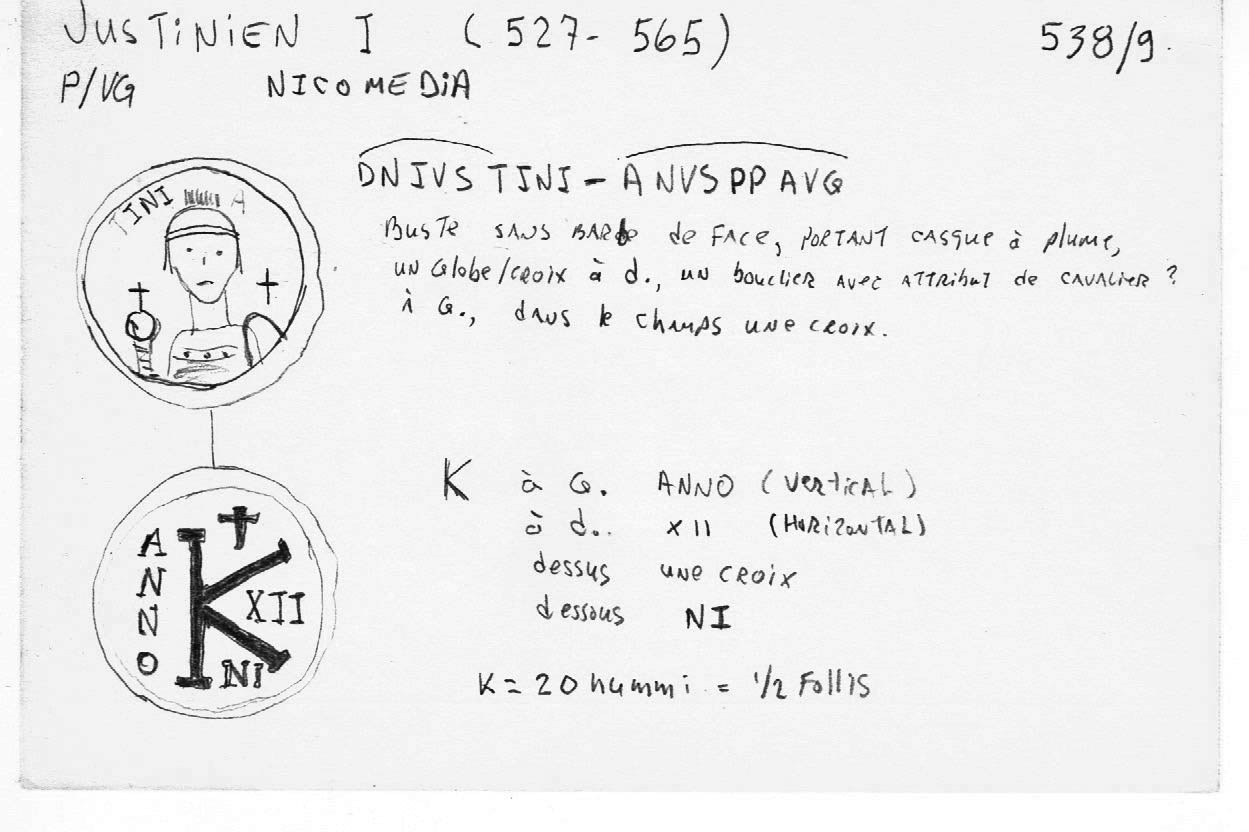 JUSTINIEN I (527- 565) 538/9.
P/VG NICOMEDIA
DNIVSTINI - ANVSPPAVG
TINI A
BUSTE SANS BARbe de FACE, PORTANT CASQUE à plume,
UN Globe/CROIX à d., UN boucliER AVEC ATTRIbUT de CAVALIER ?
à G., dANS le CHAMPS UNE CROIX.
K à G. ANNO (VERTICAL)
à d.. XII (HORIZONTAL)
dessus UNE CROIX
dessous NI
A
N
N
O
K
XII
NI
K = 20 nummi = 1/2 Follis